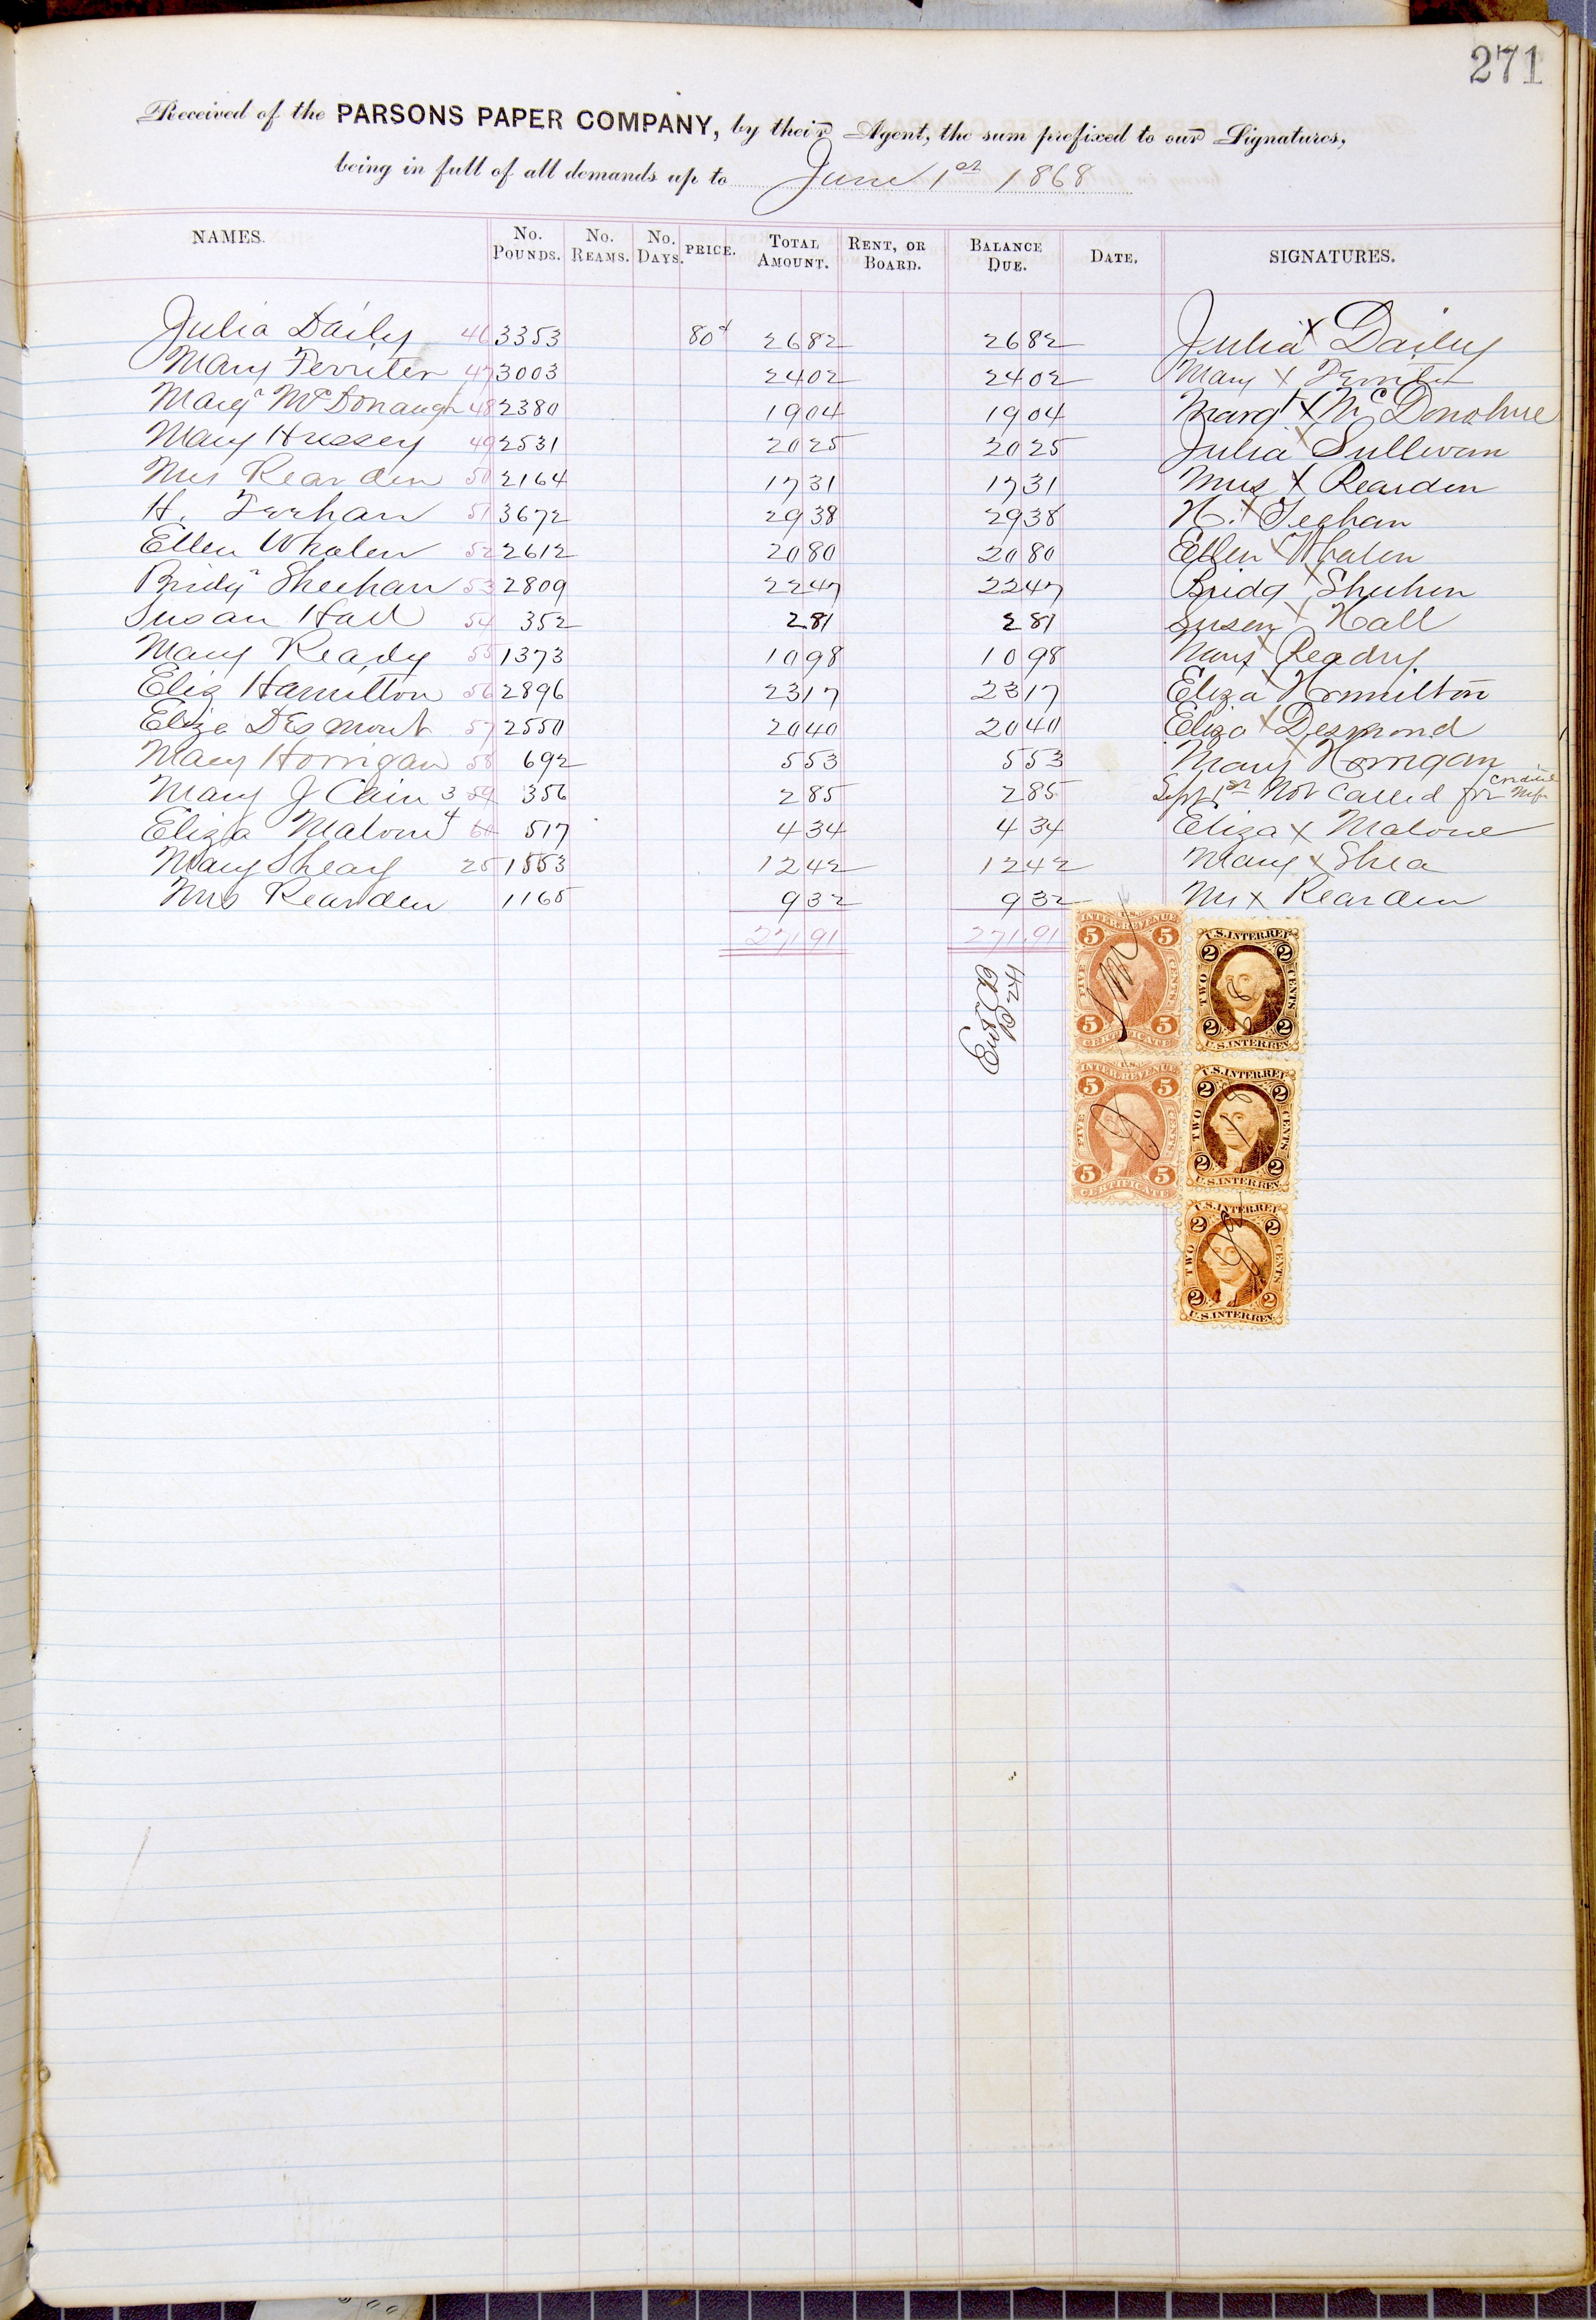 271
Received of the PARSONS PAPER COMPANY, by their Agent, the sum prefixed to our Signatures,
being in full of all demands up to June 1st 1868
NAMES. No. POUNDS. No. REAMS. No. DAYS. PRICE. TOTAL AMOUNT. RENT, OR BOARD. BALANCE DUE. DATE. SIGNATURES.
Julia Daily 46 3353 80¢ 26 82 26 82 Julia X Daily
Mary Ferriter 47 3003 24 02 24 02 Mary X Ferriter
Margt McDonaugh 48 2380 19 04 19 04 Margt X McDonohue
Mary Hussey 49 2531 20 25 20 25 Julia X Sullivan
Mrs Rearden 50 2164 17 31 17 31 Mrs X Rearden
H. Feehan 51 3672 29 38 29 38 H. X Feghan
Ellen Whalen 52 2612 20 80 20 80 Ellen X Whalen
Bridgt Sheehan 53 2809 22 47 22 47 Bridg X Shuhen
Susan Hall 54 352 2 81 2 81 Susen X Hall
Mary Ready 55 1373 10 98 10 98 Mary X Ready
Eliz Hamilton 56 2896 23 17 23 17 Eliza X Hormilton
Eliza Desmont 57 2550 20 40 20 40 Eliza X Desmond
Mary Horrigan 58 692 5 53 5 53 Mary X Horrigan
Mary J Cain 3 59 356 2 85 2 85 Sept 1st Not Called for
Eliza Malone 4 60 517 4 34 4 34 Eliza X Malone
Mary Sheay 25 1553 12 42 12 42 Mary X Shea
Mrs Rearden 1165 9 32 9 32 Mrs X Rearden
271 91 271.91
INTER. REVENUE
5 5
FIVE CENTS
5 5
CERTIFICATE
U.S. INTER. REV.
2 2
TWO CENTS
2 2
U.S. INTER. REV.
INTER. REVENUE
5 5
FIVE CENTS
5 5
CERTIFICATE
U.S. INTER. REV.
2 2
TWO CENTS
2 2
U.S. INTER. REV.
U.S. INTER. REV.
2 2
TWO CENTS
2 2
U.S. INTER. REV.